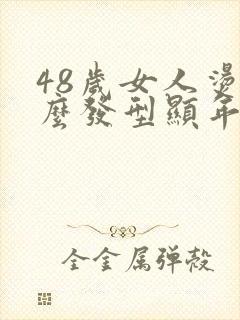 48歲女人燙
麼發型顯年
全金属弹殻